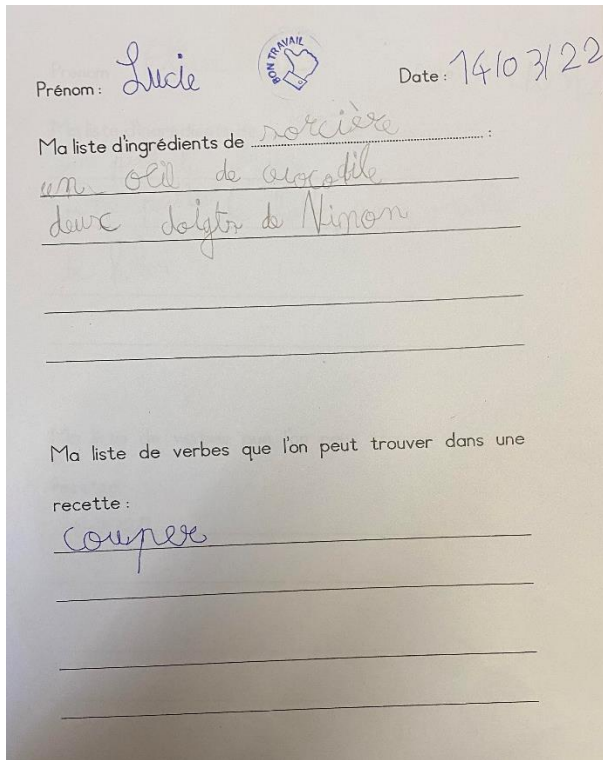 BON TRAVAIL
Prénom : Lucie Date : 14/03/22
Ma liste d'ingrédients de sorcière :
un oeil de crocodile
deux doigts de Ninon
Ma liste de verbes que l'on peut trouver dans une
recette :
couper